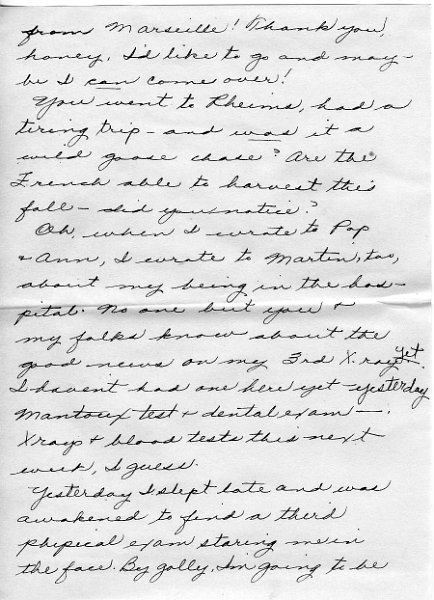 from Marseille! Thank you,
honey, I'd like to go and may-
be I can come over!
You went to Rheims, had a
tiring trip - and was it a
wild goose chase? Are the
French able to harvest this
fall - did you notice?
Oh, when I wrote to Pop
& Ann, I wrote to Martin, too,
about my being in the hos-
pital. No one but you &
my folks know about the
good news on my 3rd X ray yet.
I havent had one here yet - yesterday
Mantoux test & dental exam -.
Xrays & blood tests this next
week, I guess.
Yesterday I slept late and was
awakened to find a third
physical exam staring me in
the face. By golly, Im going to be